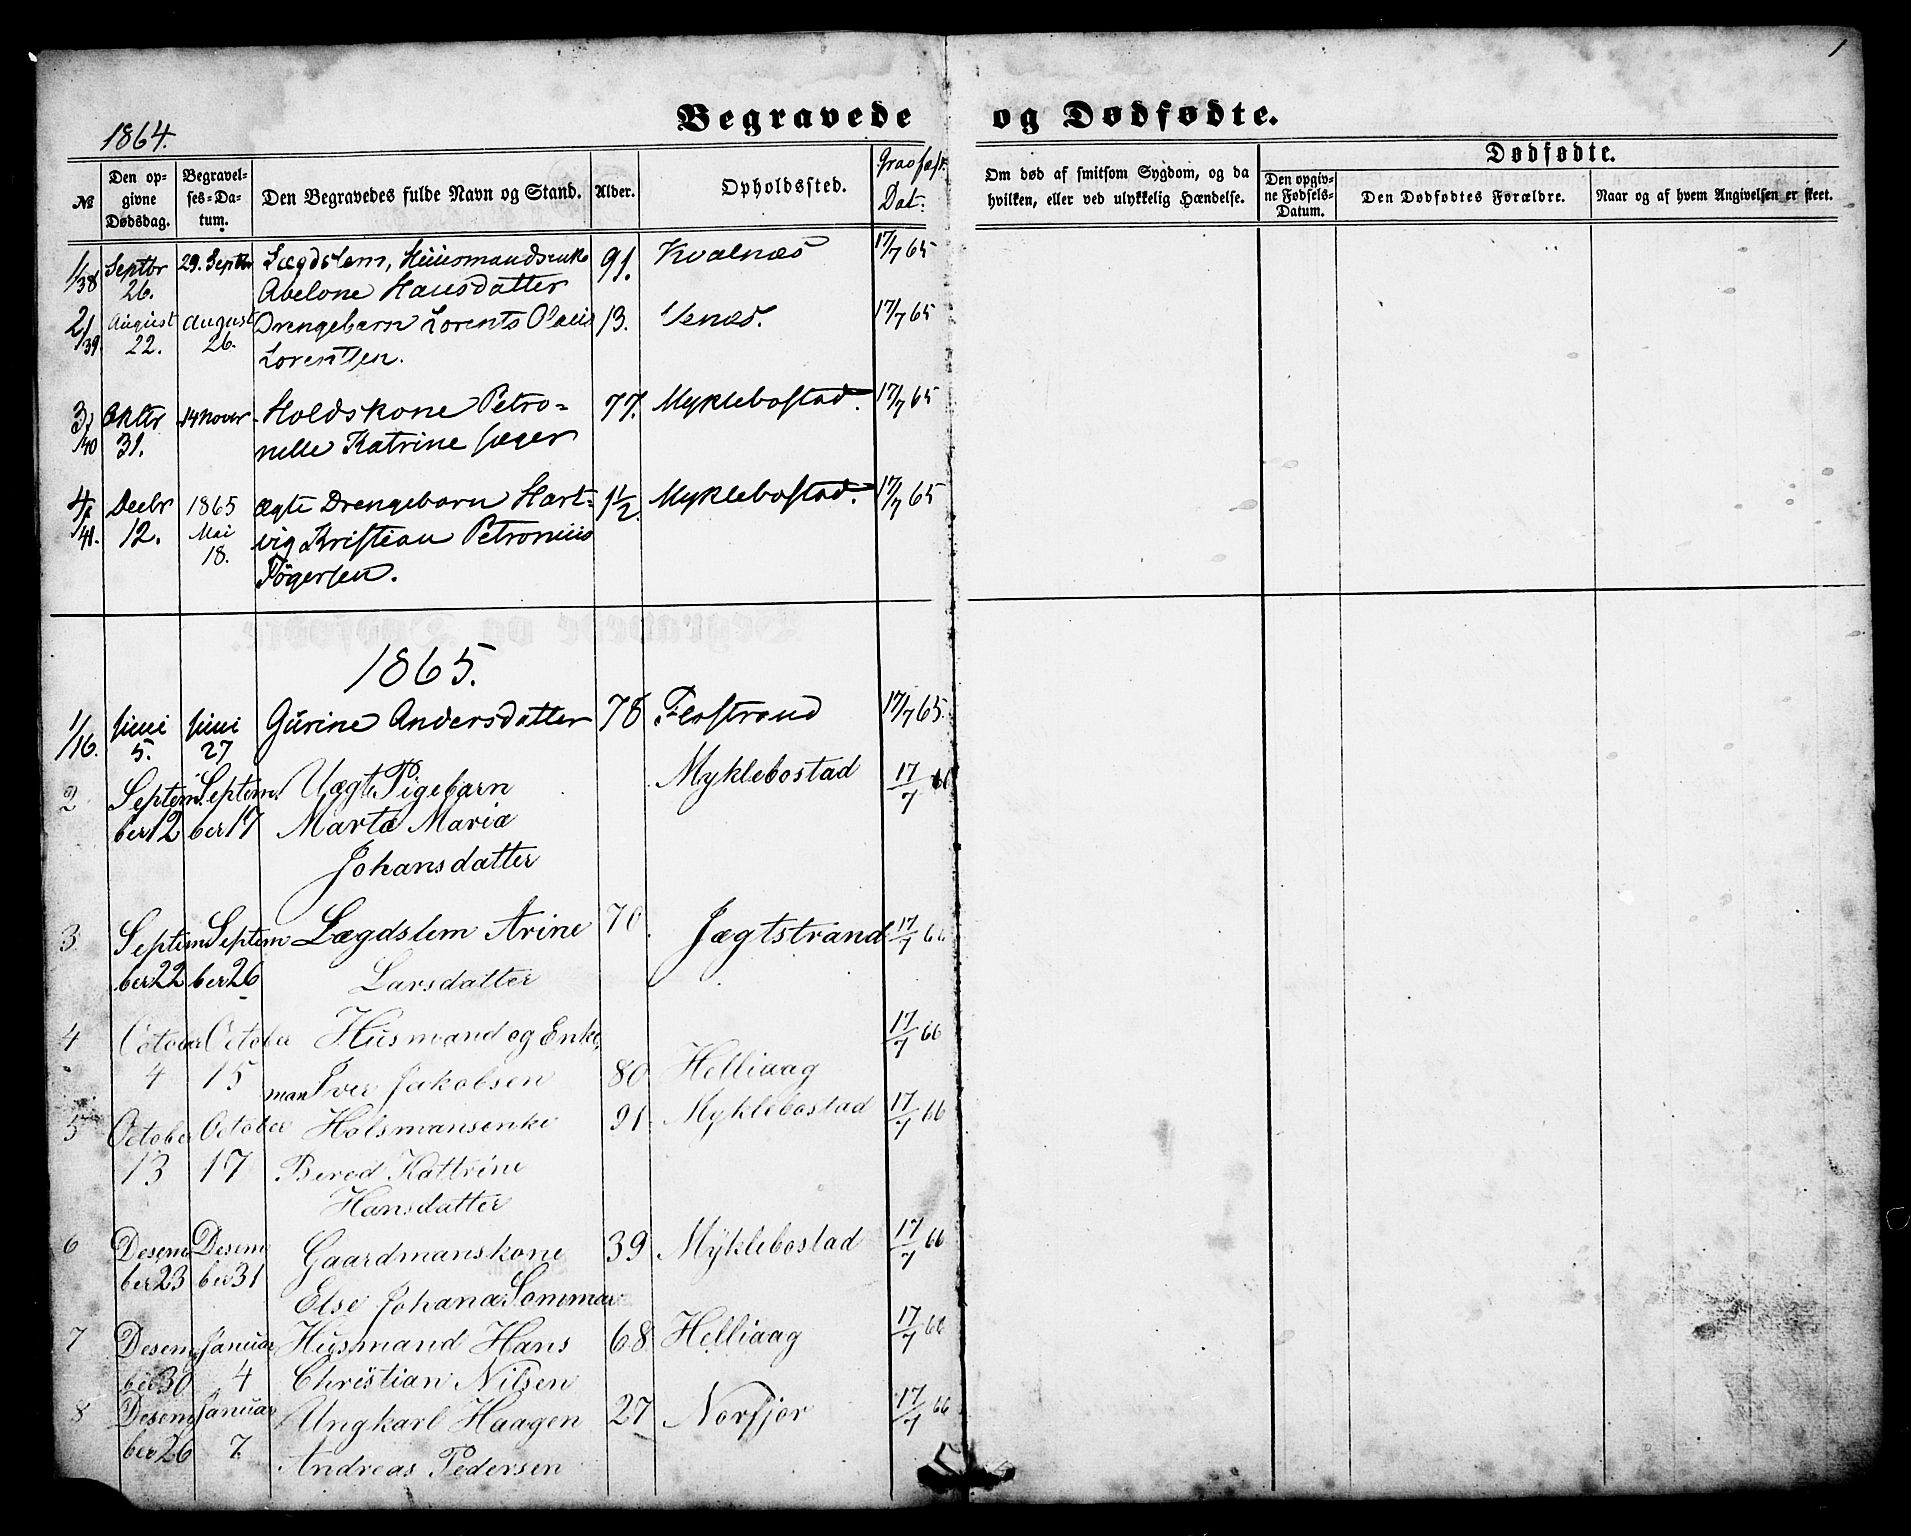 1
Begravede og Dødfødte.
1864.
№
Den op-
givne
Dødsdag.
Begravel-
ses-Da-
tum.
Den Begravedes fulde Navn og Stand.
Alder.
Opholdssted.
Dat.
Om død af smitsom Sygdom, og da
hvilken, eller ved ulykkelig Hændelse.
Dødfødte.
Den opgiv-
ne Fødsels-
Datum.
Den Dødfødtes Forældre.
Naar og af hvem Angivelsen er skeet.
1/38 Septbr 29. Septbr Lægdslem, Huusmandsenke 91. Kvalnæs 17/7 65
26. Abelone Hansdatter
2/39 August August Drengebarn Lorents Olaus 13. Usnæs. 17/7 65
22. 26. Lorentsen.
3/40 Oktbr 14 Novbr Holdskone Petro= 77. Myklebostad. 17/7 65
31. nelle Katrine Jæger
4/41. Decbr 1865 ægte Drengebarn Hart- 1 1/2. Myklebostad. 17/7 65
12. Mai vig Kristian Petronius
18. Tögersen.
1865.
1/16. Juni Juni Gurine Andersdatter 78 Flostrand 17/7 65.
5. 27
2 Septem Septem Uægte Pigebarn Myklebostad 17/7 66
ber 12 ber 17 Marta Maria
Johansdatter
3 Septem Septem Lægdslem Arine 70. Jægtstrand 17/7 66
ber 22 ber 26 Larsdatter
4 October October Husmand og Enke 17/7 66
4 15 man Iver Jakobsen 80 Helliaag
5 October October Holsmansenke 91 Myklebostad 17/7 66
13 17 Bered Kattrine
Hansdatter
6 Desem Desem Gaardmanskone 39 Myklebostad 17/7 66
ber 23 ber 31 Else Johana Sommar
7 Desem Januar Husmand Hans 68 Helliaag 17/7 66
ber 30 4 Christian Nilsen
8 Desem Januar Ungkarl Haagen 27 Norfjor 17/7 66
ber 26 7. Andreas Pedersen